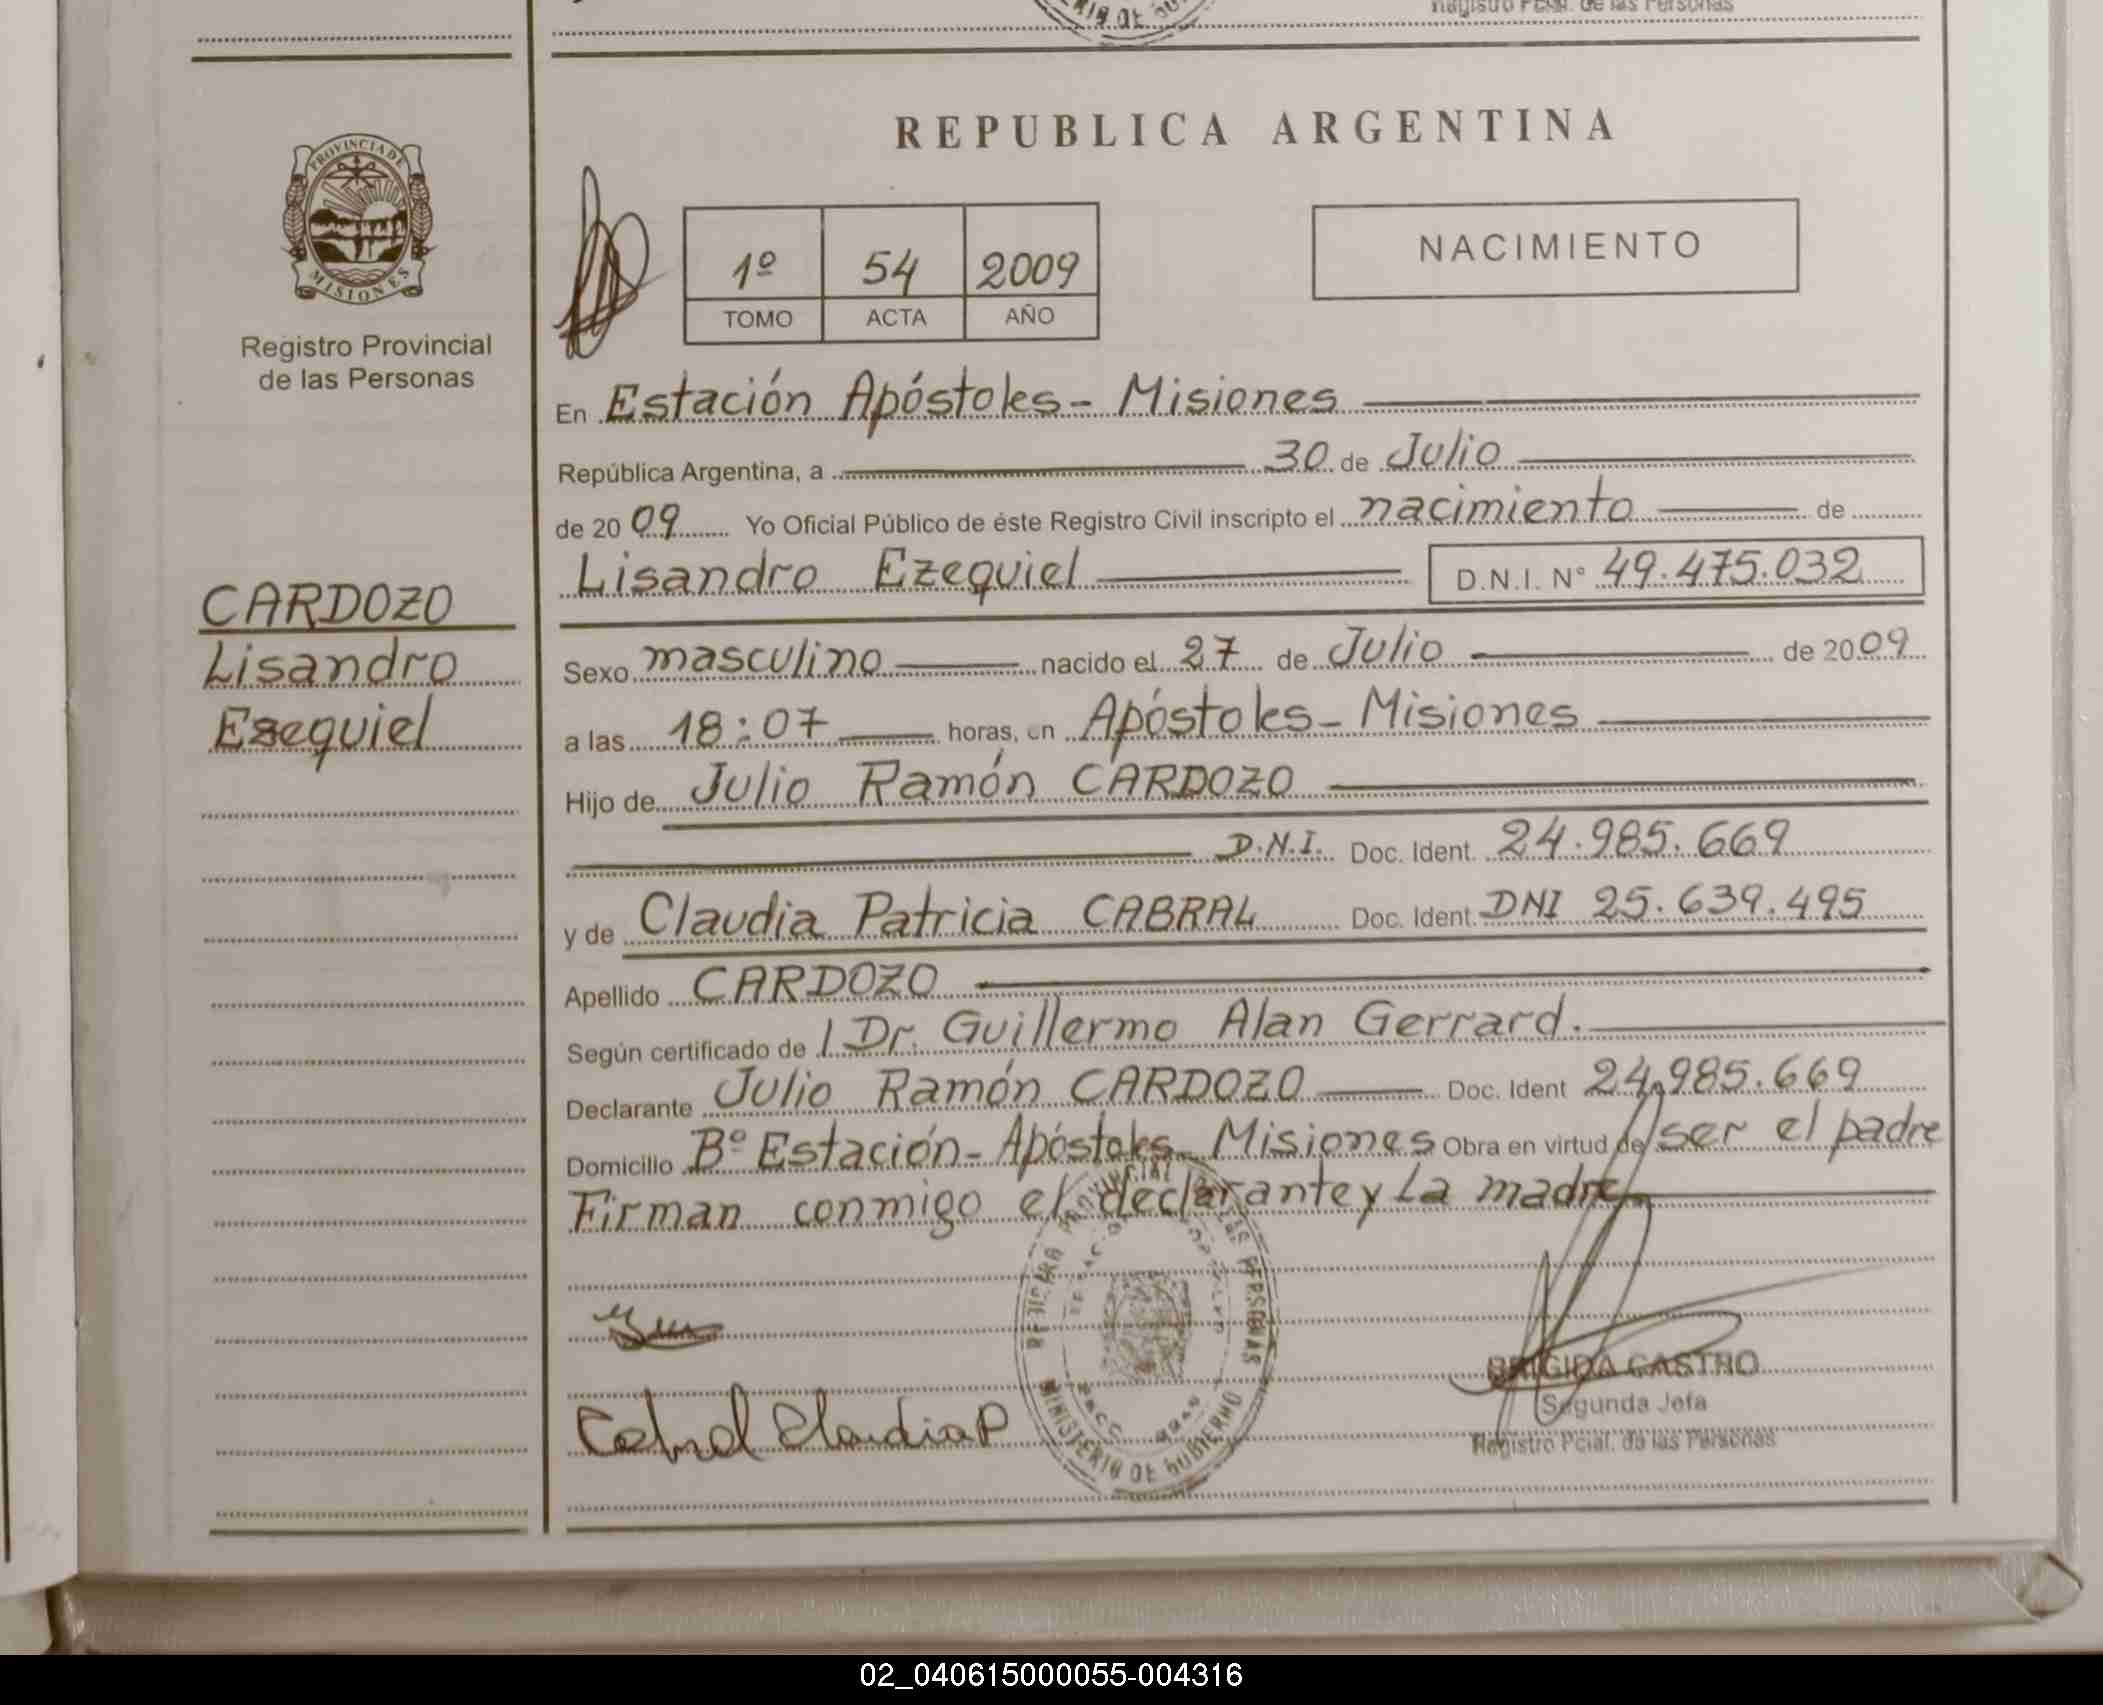 Registro Pcial. de las Personas
REPUBLICA ARGENTINA
PROVINCIA DE
MISIONES
Registro Provincial
de las Personas
1º 54 2009
TOMO ACTA AÑO
NACIMIENTO
En Estación Apóstoles - Misiones
República Argentina, a 30 de Julio
de 2009 Yo Oficial Público de éste Registro Civil inscripto el nacimiento de
Lisandro Ezequiel D.N.I. Nº 49.475.032
CARDOZO
Lisandro
Ezequiel
Sexo masculino nacido el 27 de Julio de 2009
a las 18:07 horas, en Apóstoles - Misiones
Hijo de Julio Ramón CARDOZO
D.N.I. Doc. Ident. 24.985.669
y de Claudia Patricia CABRAL Doc. Ident. DNI 25.639.495
Apellido CARDOZO
Según certificado de / Dr. Guillermo Alan Gerrard.
Declarante Julio Ramón CARDOZO Doc. Ident 24.985.669
Domicilio Bº Estación - Apóstoles - Misiones Obra en virtud de ser el padre
Firman conmigo el declarante y La madre
MINISTERIO DE GOBIERNO
Cabral Claudia P
BRIGIDA CASTRO
Segunda Jefa
Registro Pcial. de las Personas
02_040615000055-004316